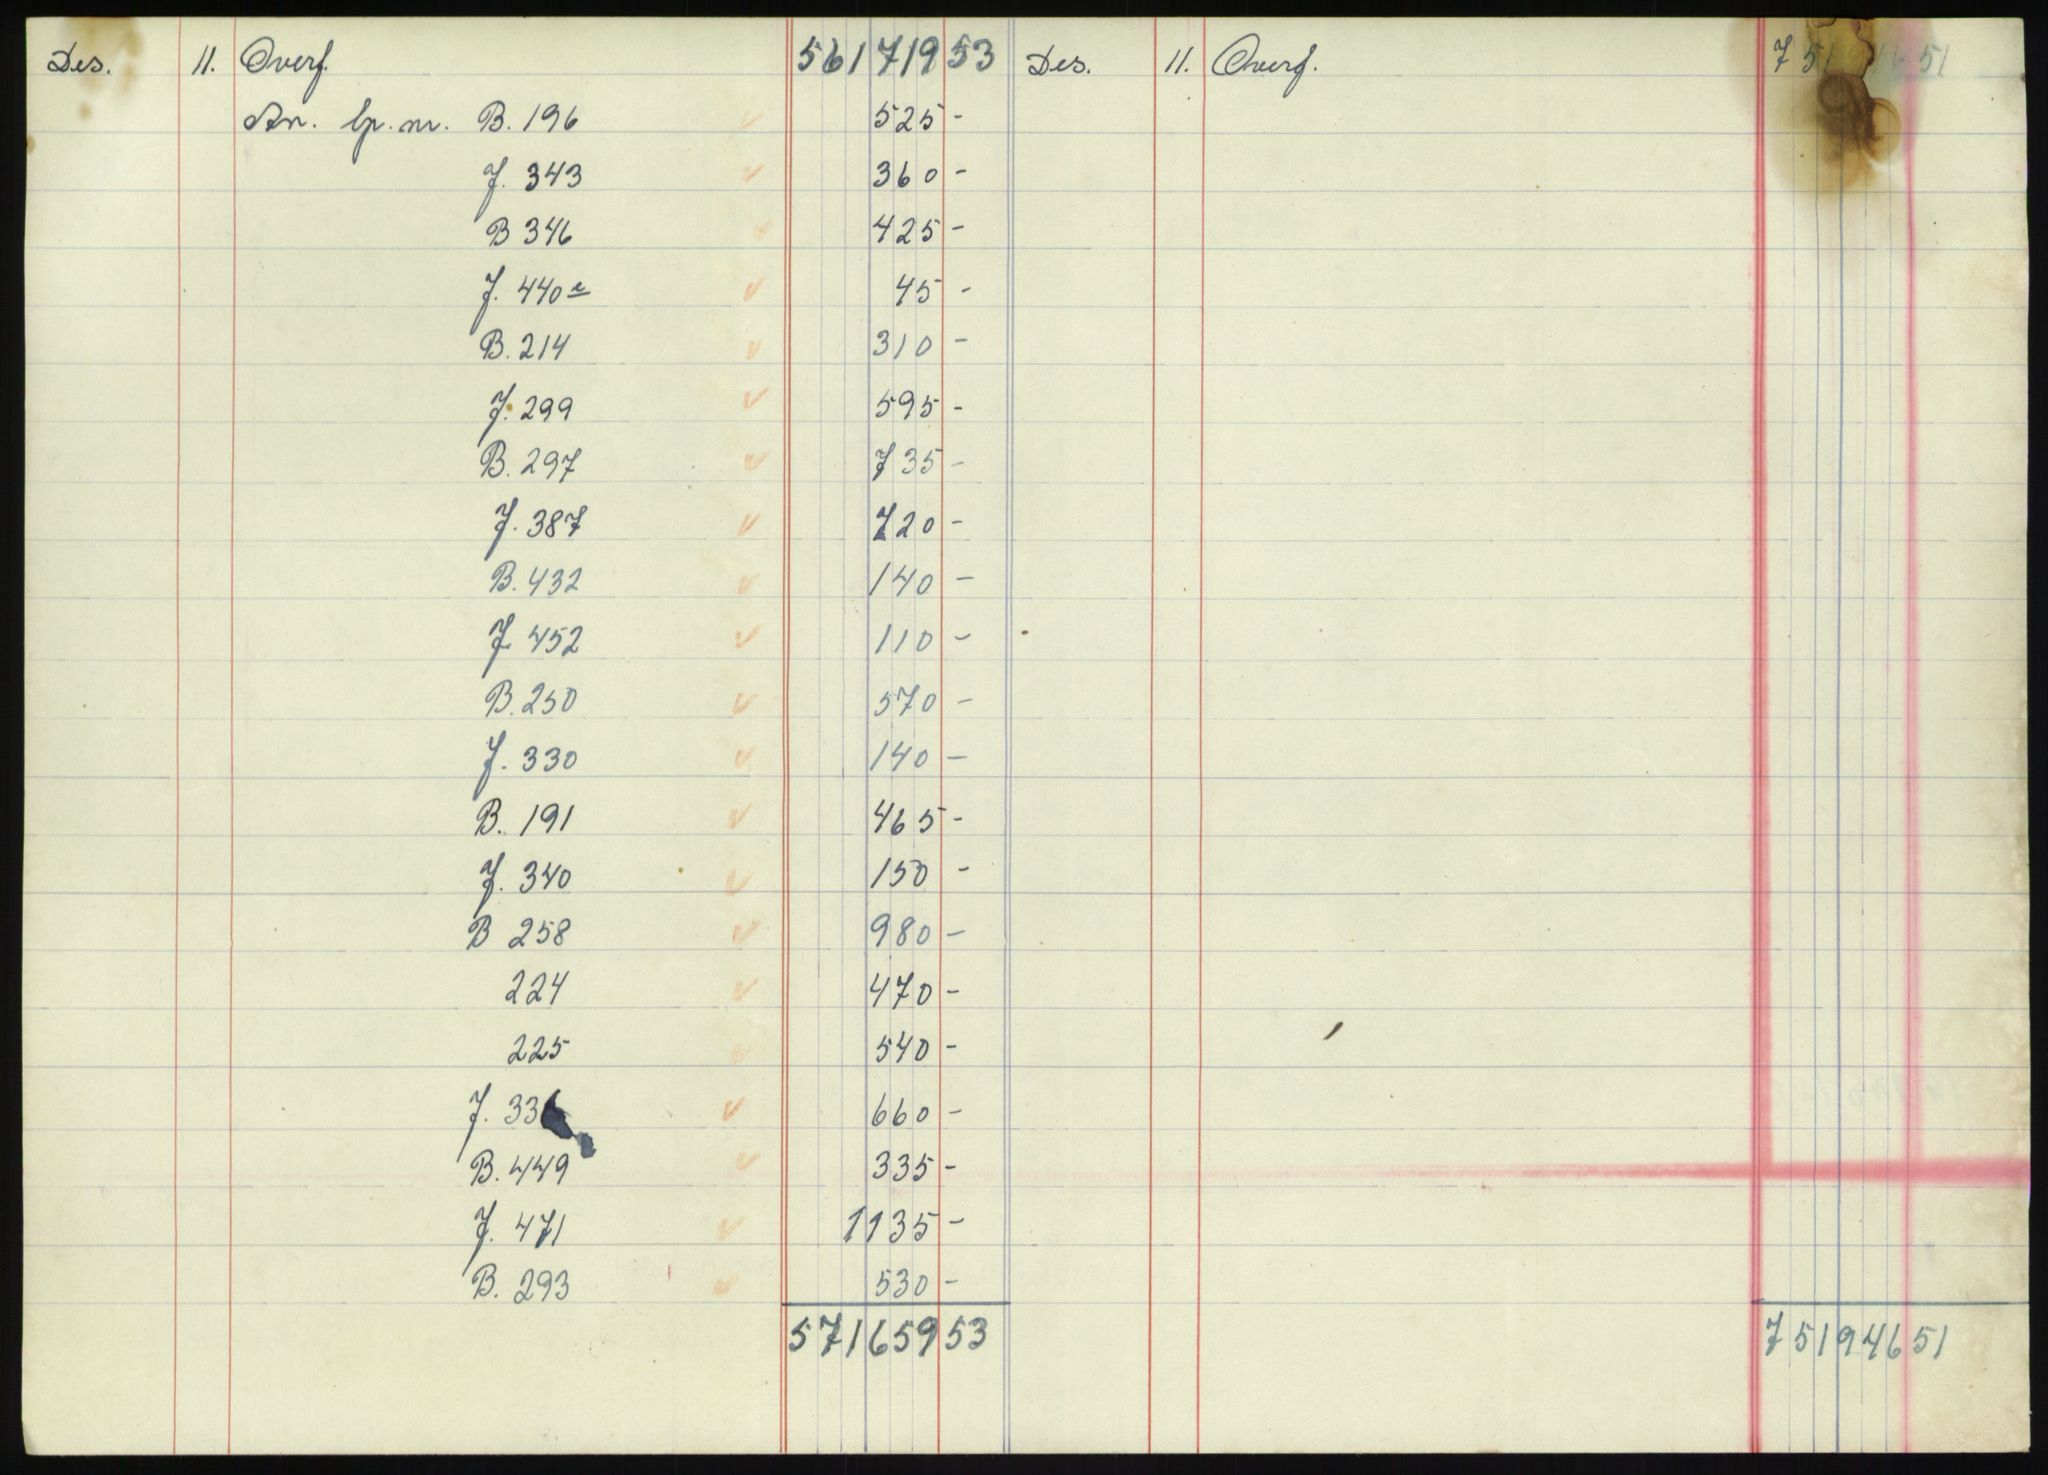 Des. 11. Overf. 561719 53
An. lp. nr. B. 196 525 -
J. 343 360 -
B 346 425 -
J. 440 a 45 -
B. 214 310 -
J. 299 595 -
B. 297 735 -
J. 387 720 -
B. 432 140 -
J. 452 110 -
B. 250 570 -
J. 330 140 -
B. 191 465 -
J. 340 150 -
B 258 980 -
224 470 -
225 540 -
J. 336 660 -
B. 449 335 -
J. 471 1135 -
B. 293 530 -
571659 53
Des. 11. Overf.
751946 51